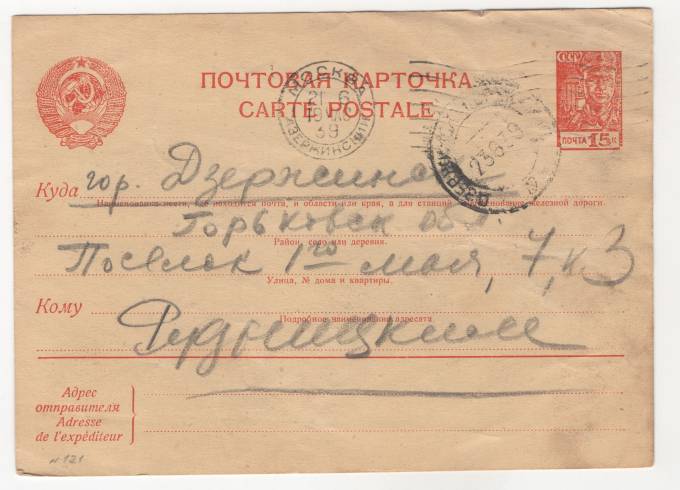 ПОЧТОВАЯ КАРТОЧКА
CARTE POSTALE
СССР
ПОЧТА 15 К
МОСКВА
39
23639
Куда гор. Дзержинск
Наименование места, где находится почта, и области или края, а для станций наименование железной дороги.
Горьковск обл.
Район, село или деревня.
Поселок 1го мая, 7, к 3
Улица, № дома и квартиры.
Кому
Подробное наименование адресата
Рудницким
Адрес
отправителя
Adresse
de l'expéditeur
н-121